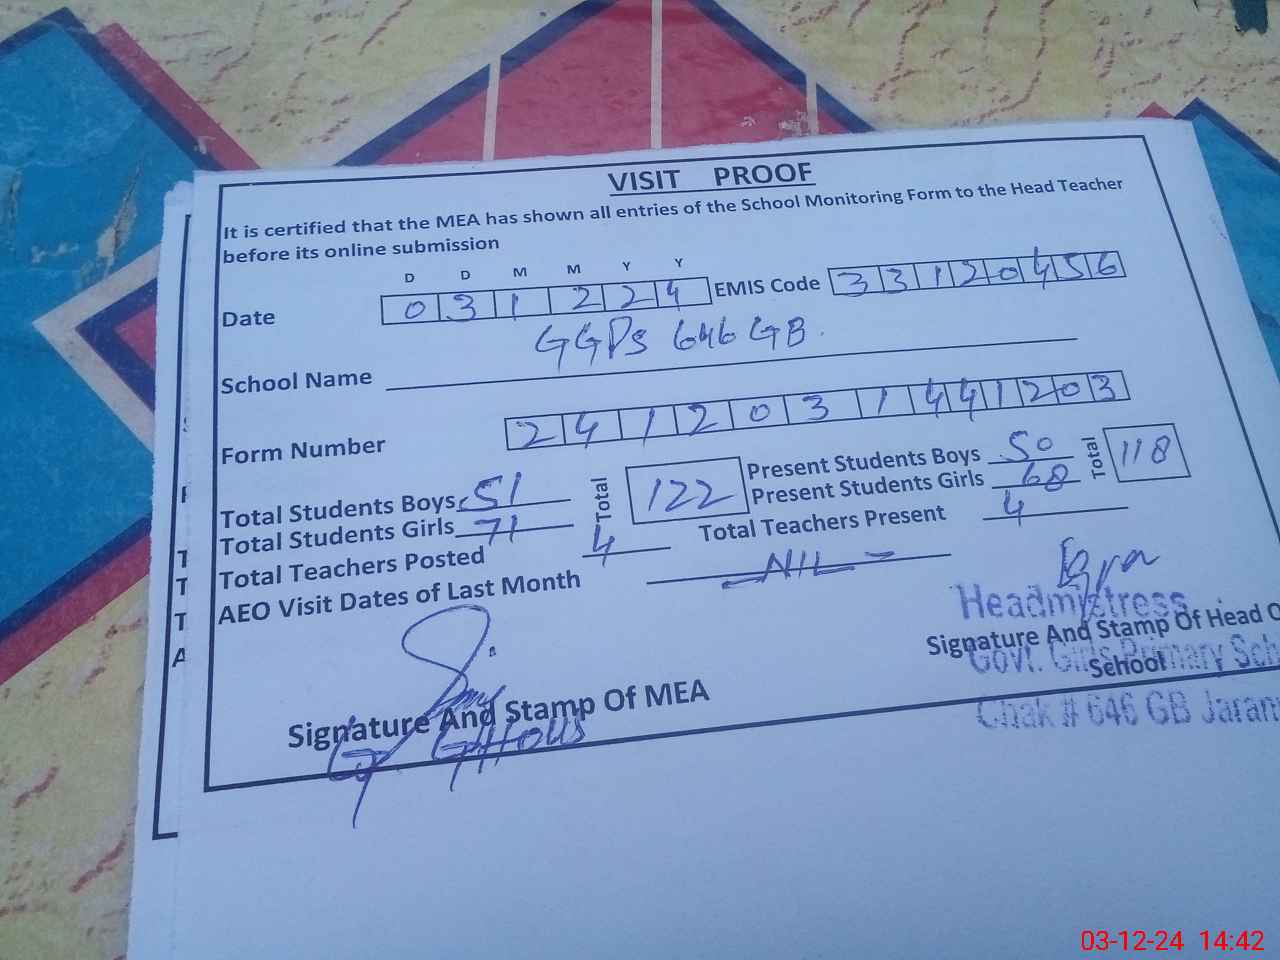 VISIT PROOF
It is certified that the MEA has shown all entries of the School Monitoring Form to the Head Teacher
before its online submission
D D M M Y Y
Date 0 3 1 2 2 4 EMIS Code 3 3 1 2 0 4 5 6
School Name GGPS 646 GB
Form Number 2 4 1 2 0 3 1 4 4 1 2 0 3
Total Students Boys 51 Total 122 Present Students Boys 50 Total 118
Total Students Girls 71 Present Students Girls 68
Total Teachers Posted 4 Total Teachers Present 4
AEO Visit Dates of Last Month NIL
Headmistress
Signature And Stamp Of Head O
School
Govt. Girls Primary Sch
Chak # 646 GB Jaran
Signature And Stamp Of MEA
03-12-24 14:42